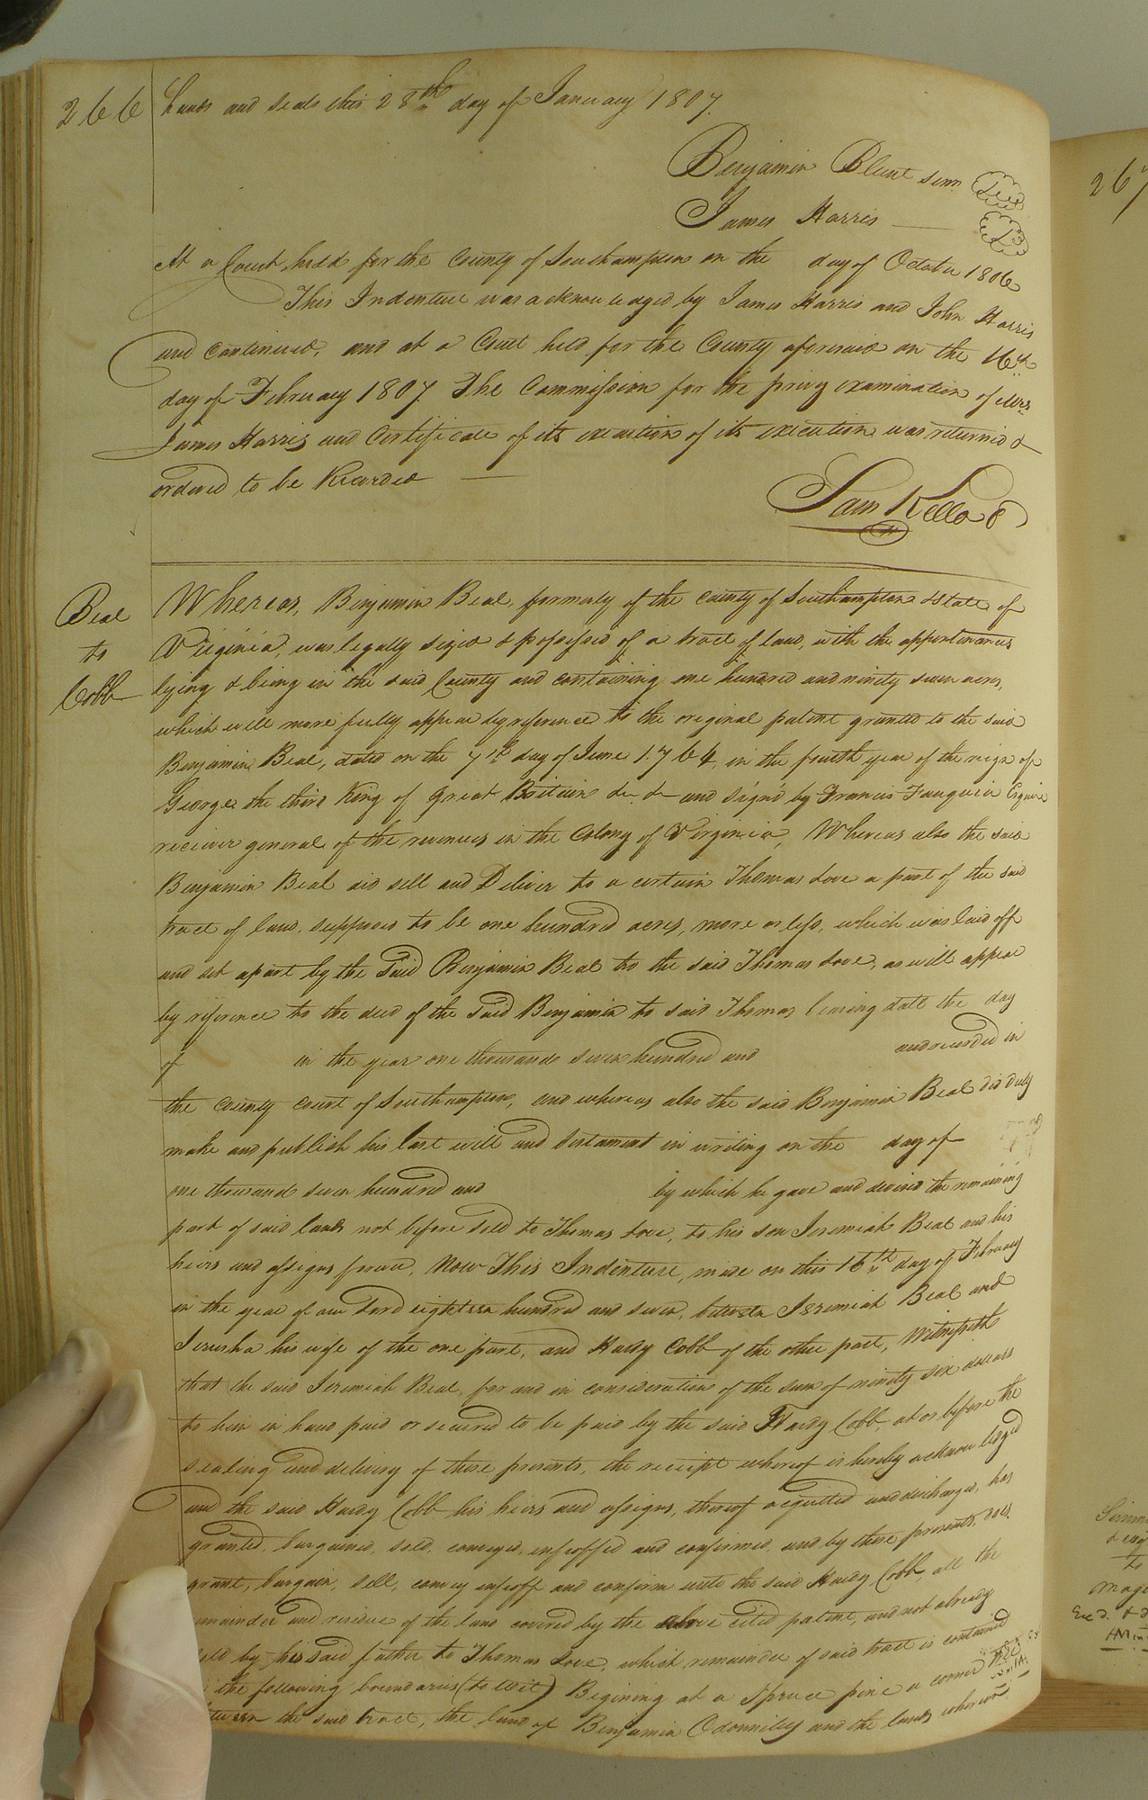 266
hands and seals this 28th day of January 1807.
Benjamin Blunt senr. Seal
James Harris — LS
At a Court held for the County of Southampton on the day of October 1806
This Indenture was acknowledged by James Harris and John Harris
and continued, and at a Court held for the County aforesaid on the 16th
day of February 1807 The Commission for the privy examination of Mrs
James Harris and Certificate of its execution of its execution was returned &
ordered to be Recorded —
Sam Kello C
Beal
to
Cobb
Whereas, Benjamin Beal, formerly of the county of Southampton & State of
Virginia, was legally sized & possessed of a tract of land, with the appurtenances
lying & being in the said County and containing one hundred and ninety seven acres,
which will more fully appear by reference to the original patent granted to the said
Benjamin Beal, dated on the 7th day of June 1764, in the fourth year of the reign of
George the third King of Great Britain &c. &c and sign'd by Francis Fauquier Esquire
receiver general of the revenues in the Colony of Virginia, Whereas also the said
Benjamin Beal did sell and Deliver to a certain Thomas Love a part of the said
tract of land, supposed to be one hundred acres, more or less, which was laid off
and set apart by the said Benjamin Beal to the said Thomas Love, as will appear
by reference to the deed of the said Benjamin to said Thomas bearing date the day
of in the year one thousand seven hundred and and recorded in
the county court of Southampton, and whereas also the said Benjamin Beal did duly
make and publish his last will and testament in writing on the day of
one thousand seven hundred and by which he gave and devised the remaining
part of said lands not before sold to Thomas Love, to his son Jeremiah Beal and his
heirs and assigns forever, Now This Indenture, made on this 16th day of February
in the year of our Lord eighteen hundred and seven, between Jeremiah Beal and
Jerusha his wife of the one part, and Hardy Cobb of the other part, Witnesseth
that the said Jeremiah Beal, for and in consideration of the sum of ninety six dollars
to him in hand paid or secured to be paid by the said Hardy Cobb, at or before the
sealing and delivery of these presents, the receipt whereof is hereby acknowledged
and the said Hardy Cobb his heirs and assigns, thereof acquitted and discharged, has
granted, bargained, sold, conveyed, enfeoffed and confirmed, and by these presents, does
grant, bargain, sell, convey enfeoff and confirm unto the said Hardy Cobb, all the
remainder and residue of the land covered by the above cited patent, and not already
sold by his said father to Thomas Love, which remainder of said tract is contained
the following boundaries (to wit) Begining at a spruce pine a corner tree
between the said tract, the land of Benjamin Odonnilly and the lands whereon
267
to